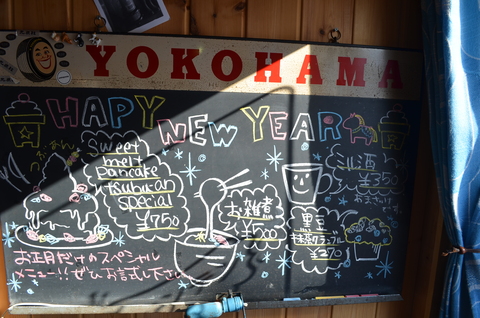 YOKOHAMA
HAPY NEW YEAR
Sweet
melt
pancake
tsubu-an
special
¥750
お雑煮
¥500
黒豆
抹茶クランブル
¥270
酒
¥350
お正月だけのスペシャル
メニュー!!ぜひお試し下さい